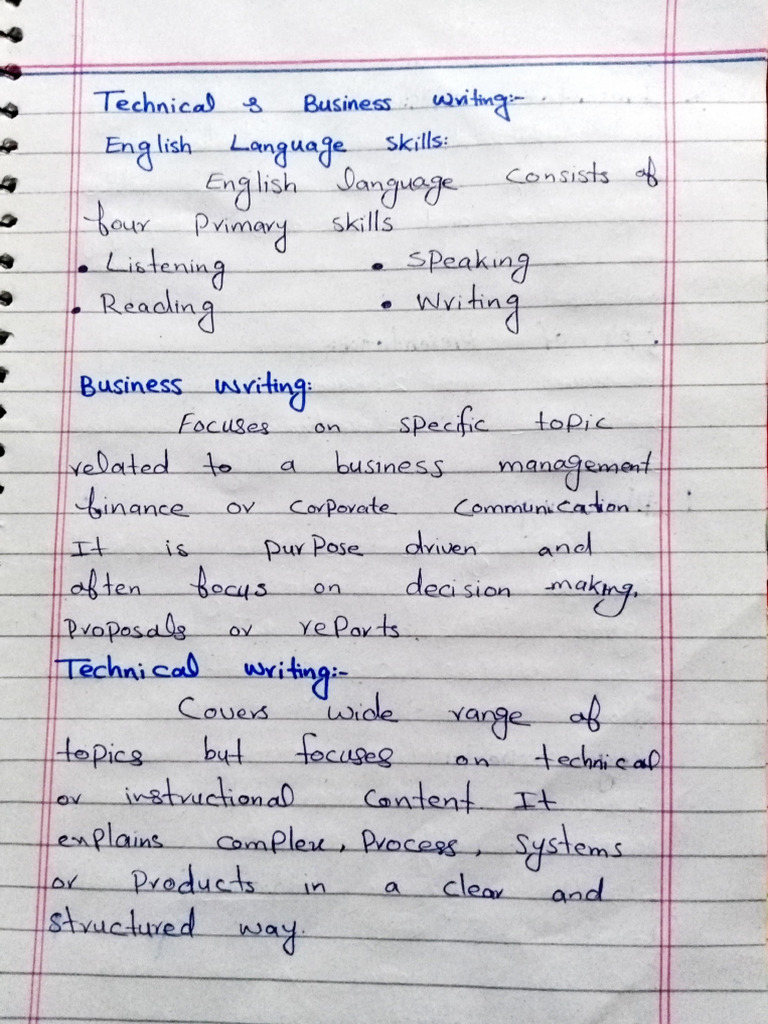 Technical & Business writing:-
English Language skills:
English language consists of
four primary skills
• Listening • Speaking
• Reading • Writing
Business writing:
Focuses on specific topic
related to a business management
finance or corporate communication.
It is purpose driven and
often focus on decision making,
proposals or reports.
Technical writing:-
Covers wide range of
topics but focuses on technical
or instructional content It
explains complex, Process, Systems
or Products in a clear and
structured way.